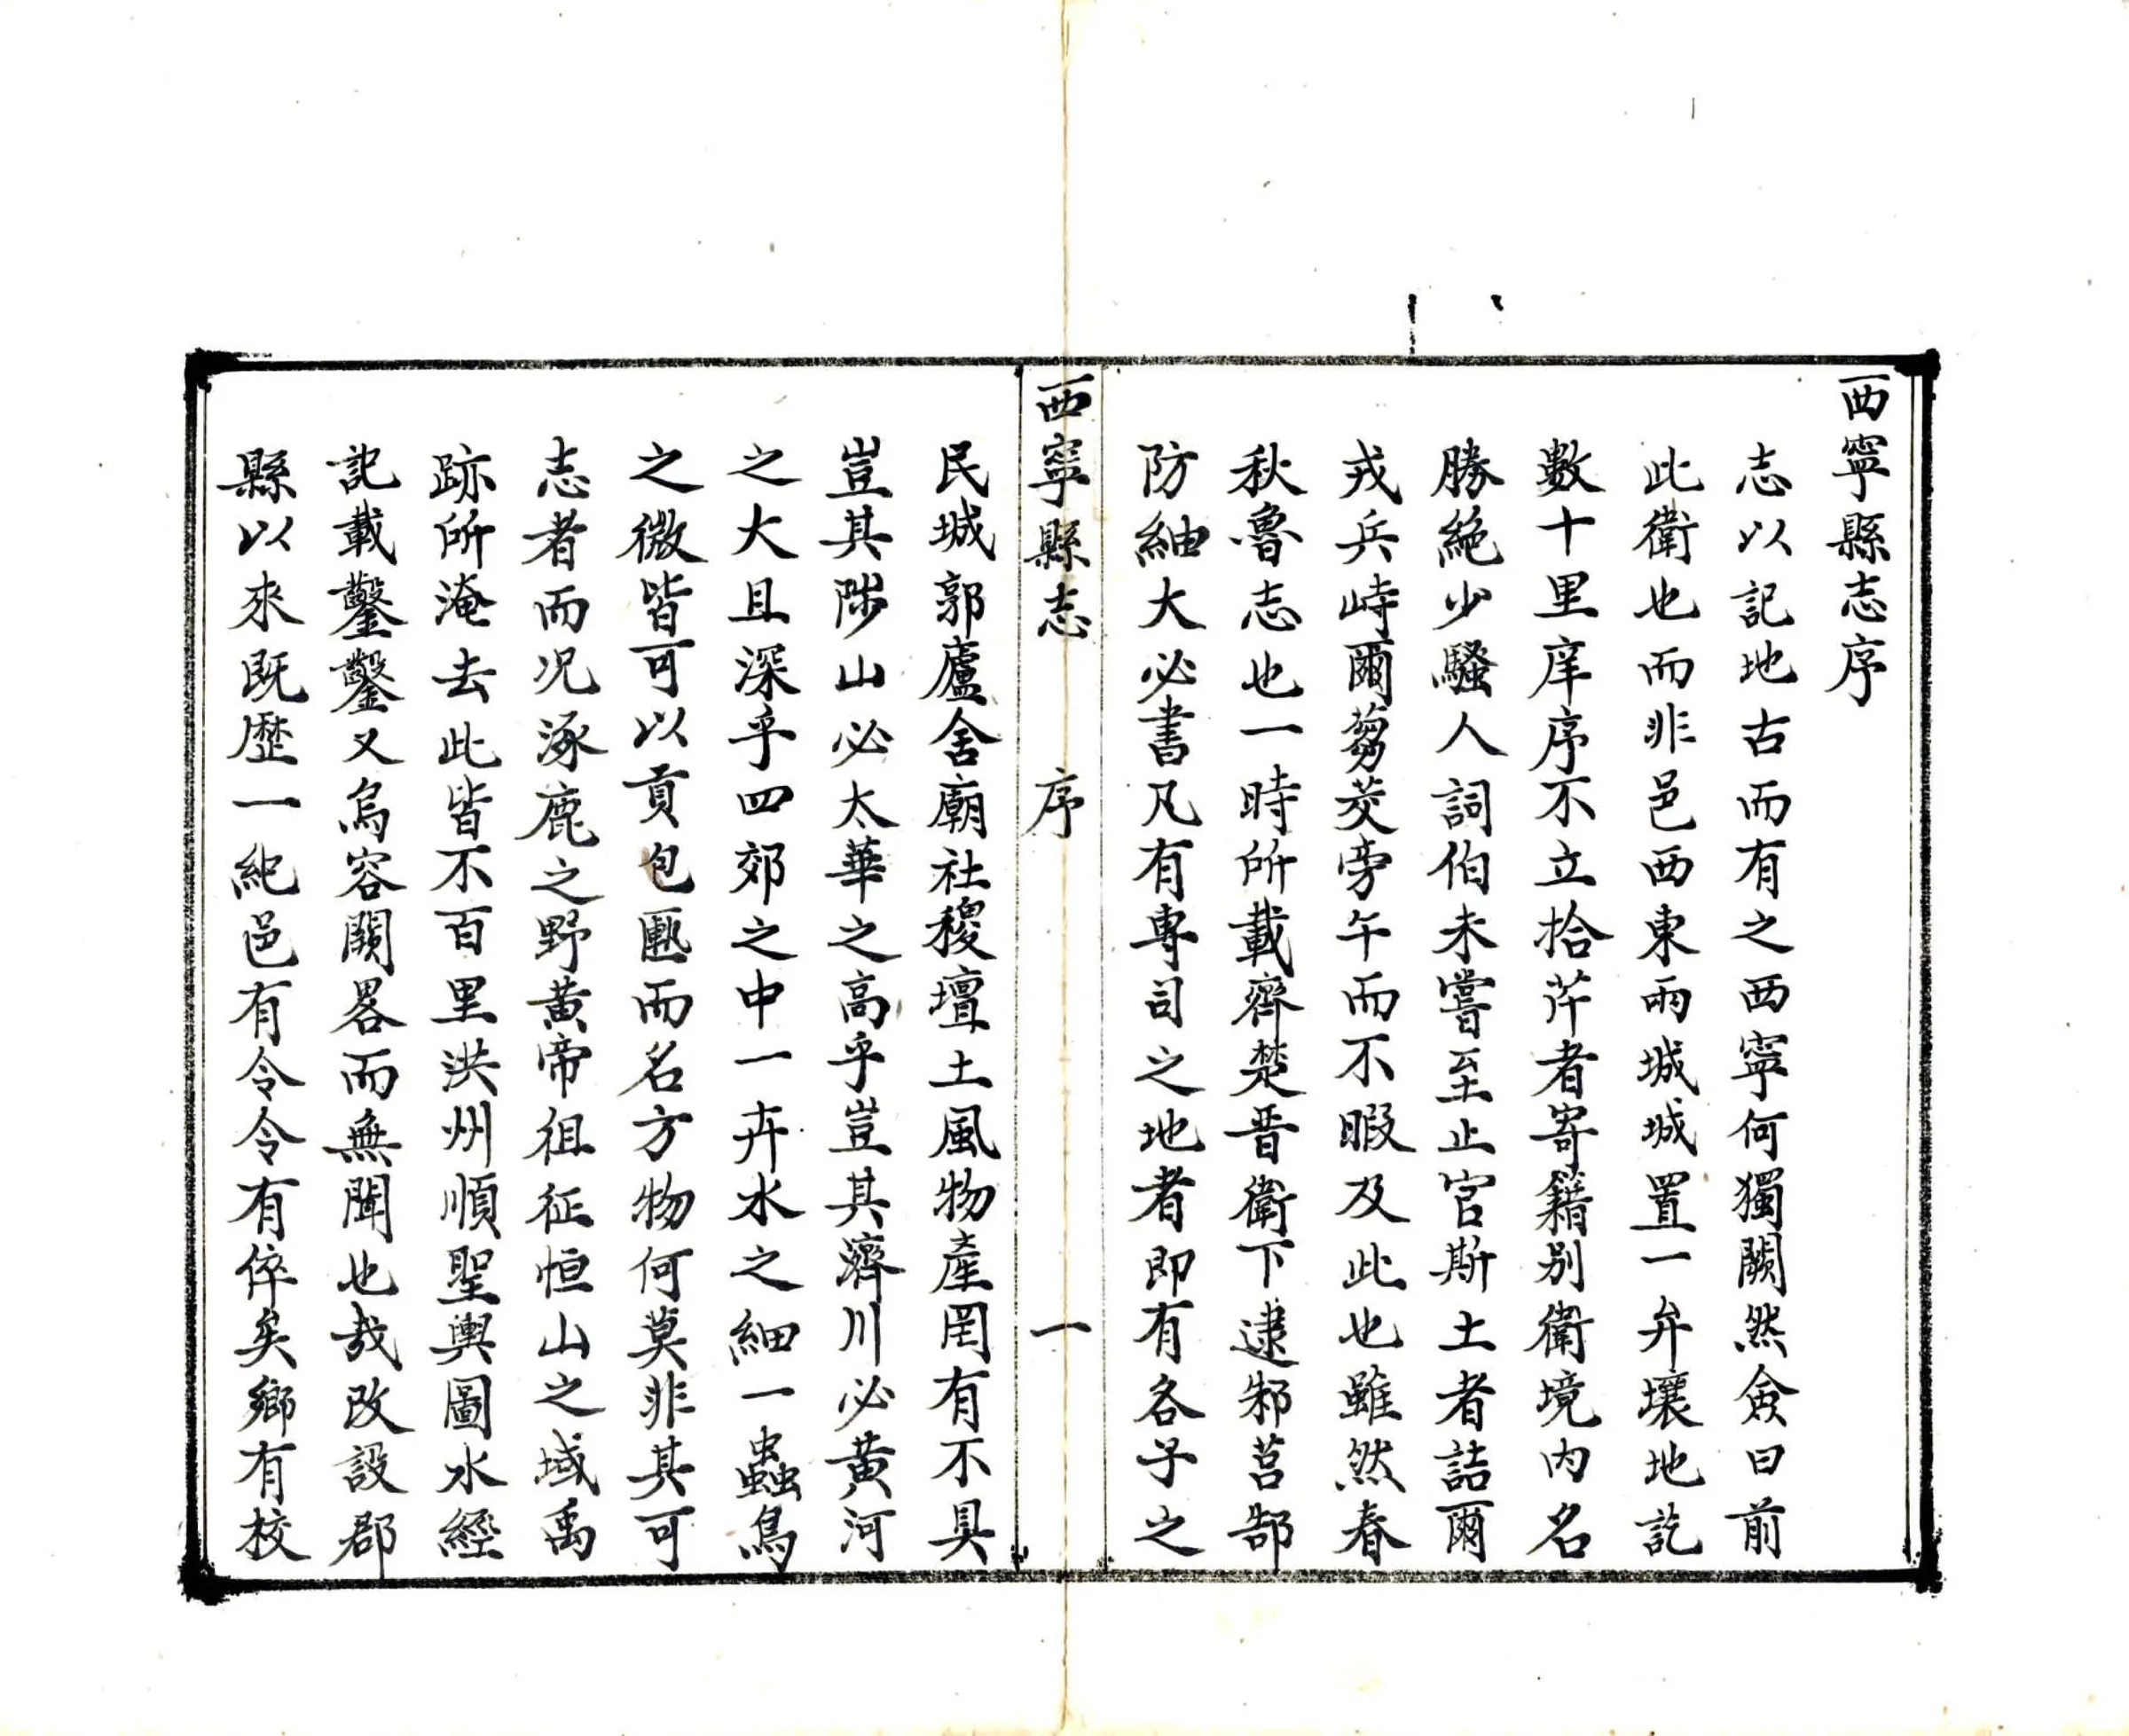 西寧縣志序
志以記地古而有之西寧何獨闕然僉曰前
此衛也而非邑西東兩城城置一弁壤地訖
數十里庠序不立拾芹者寄籍别衛境内名
勝絶少騷人詞伯未嘗至止官斯土者詰爾
戎兵峙爾蒭茭旁午而不暇及此也雖然春
秋魯志也一時所載齊楚晋衛下逮邾莒郜
防紬大必書凡有專司之地者即有各子之
西寧縣志 序 一
民城郭廬舍廟社稷壇土風物産罔有不具
豈其陟山必太華之高乎豈其濟川必黄河
之大且深乎四郊之中一卉水之細一蟲鳥
之微皆可以貢包匭而名方物何莫非其可
志者而况涿鹿之野黄帝徂征恒山之域禹
跡所淹去此皆不百里洪州順聖輿圖水經
記載鑿鑿又烏容闕畧而無聞也哉改設郡
縣以來既歷一紀邑有令令有倅矣鄉有校